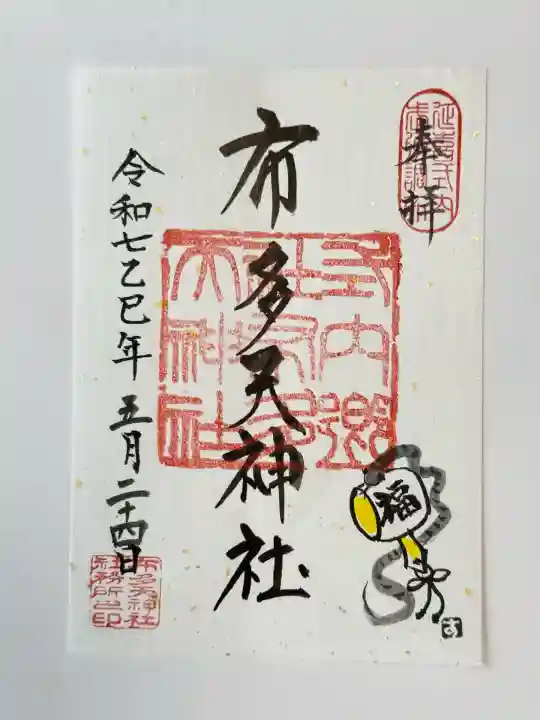 奉拝
布多天神社
令和七乙巳年 五月二十四日
福
布多天神社
社務所之印